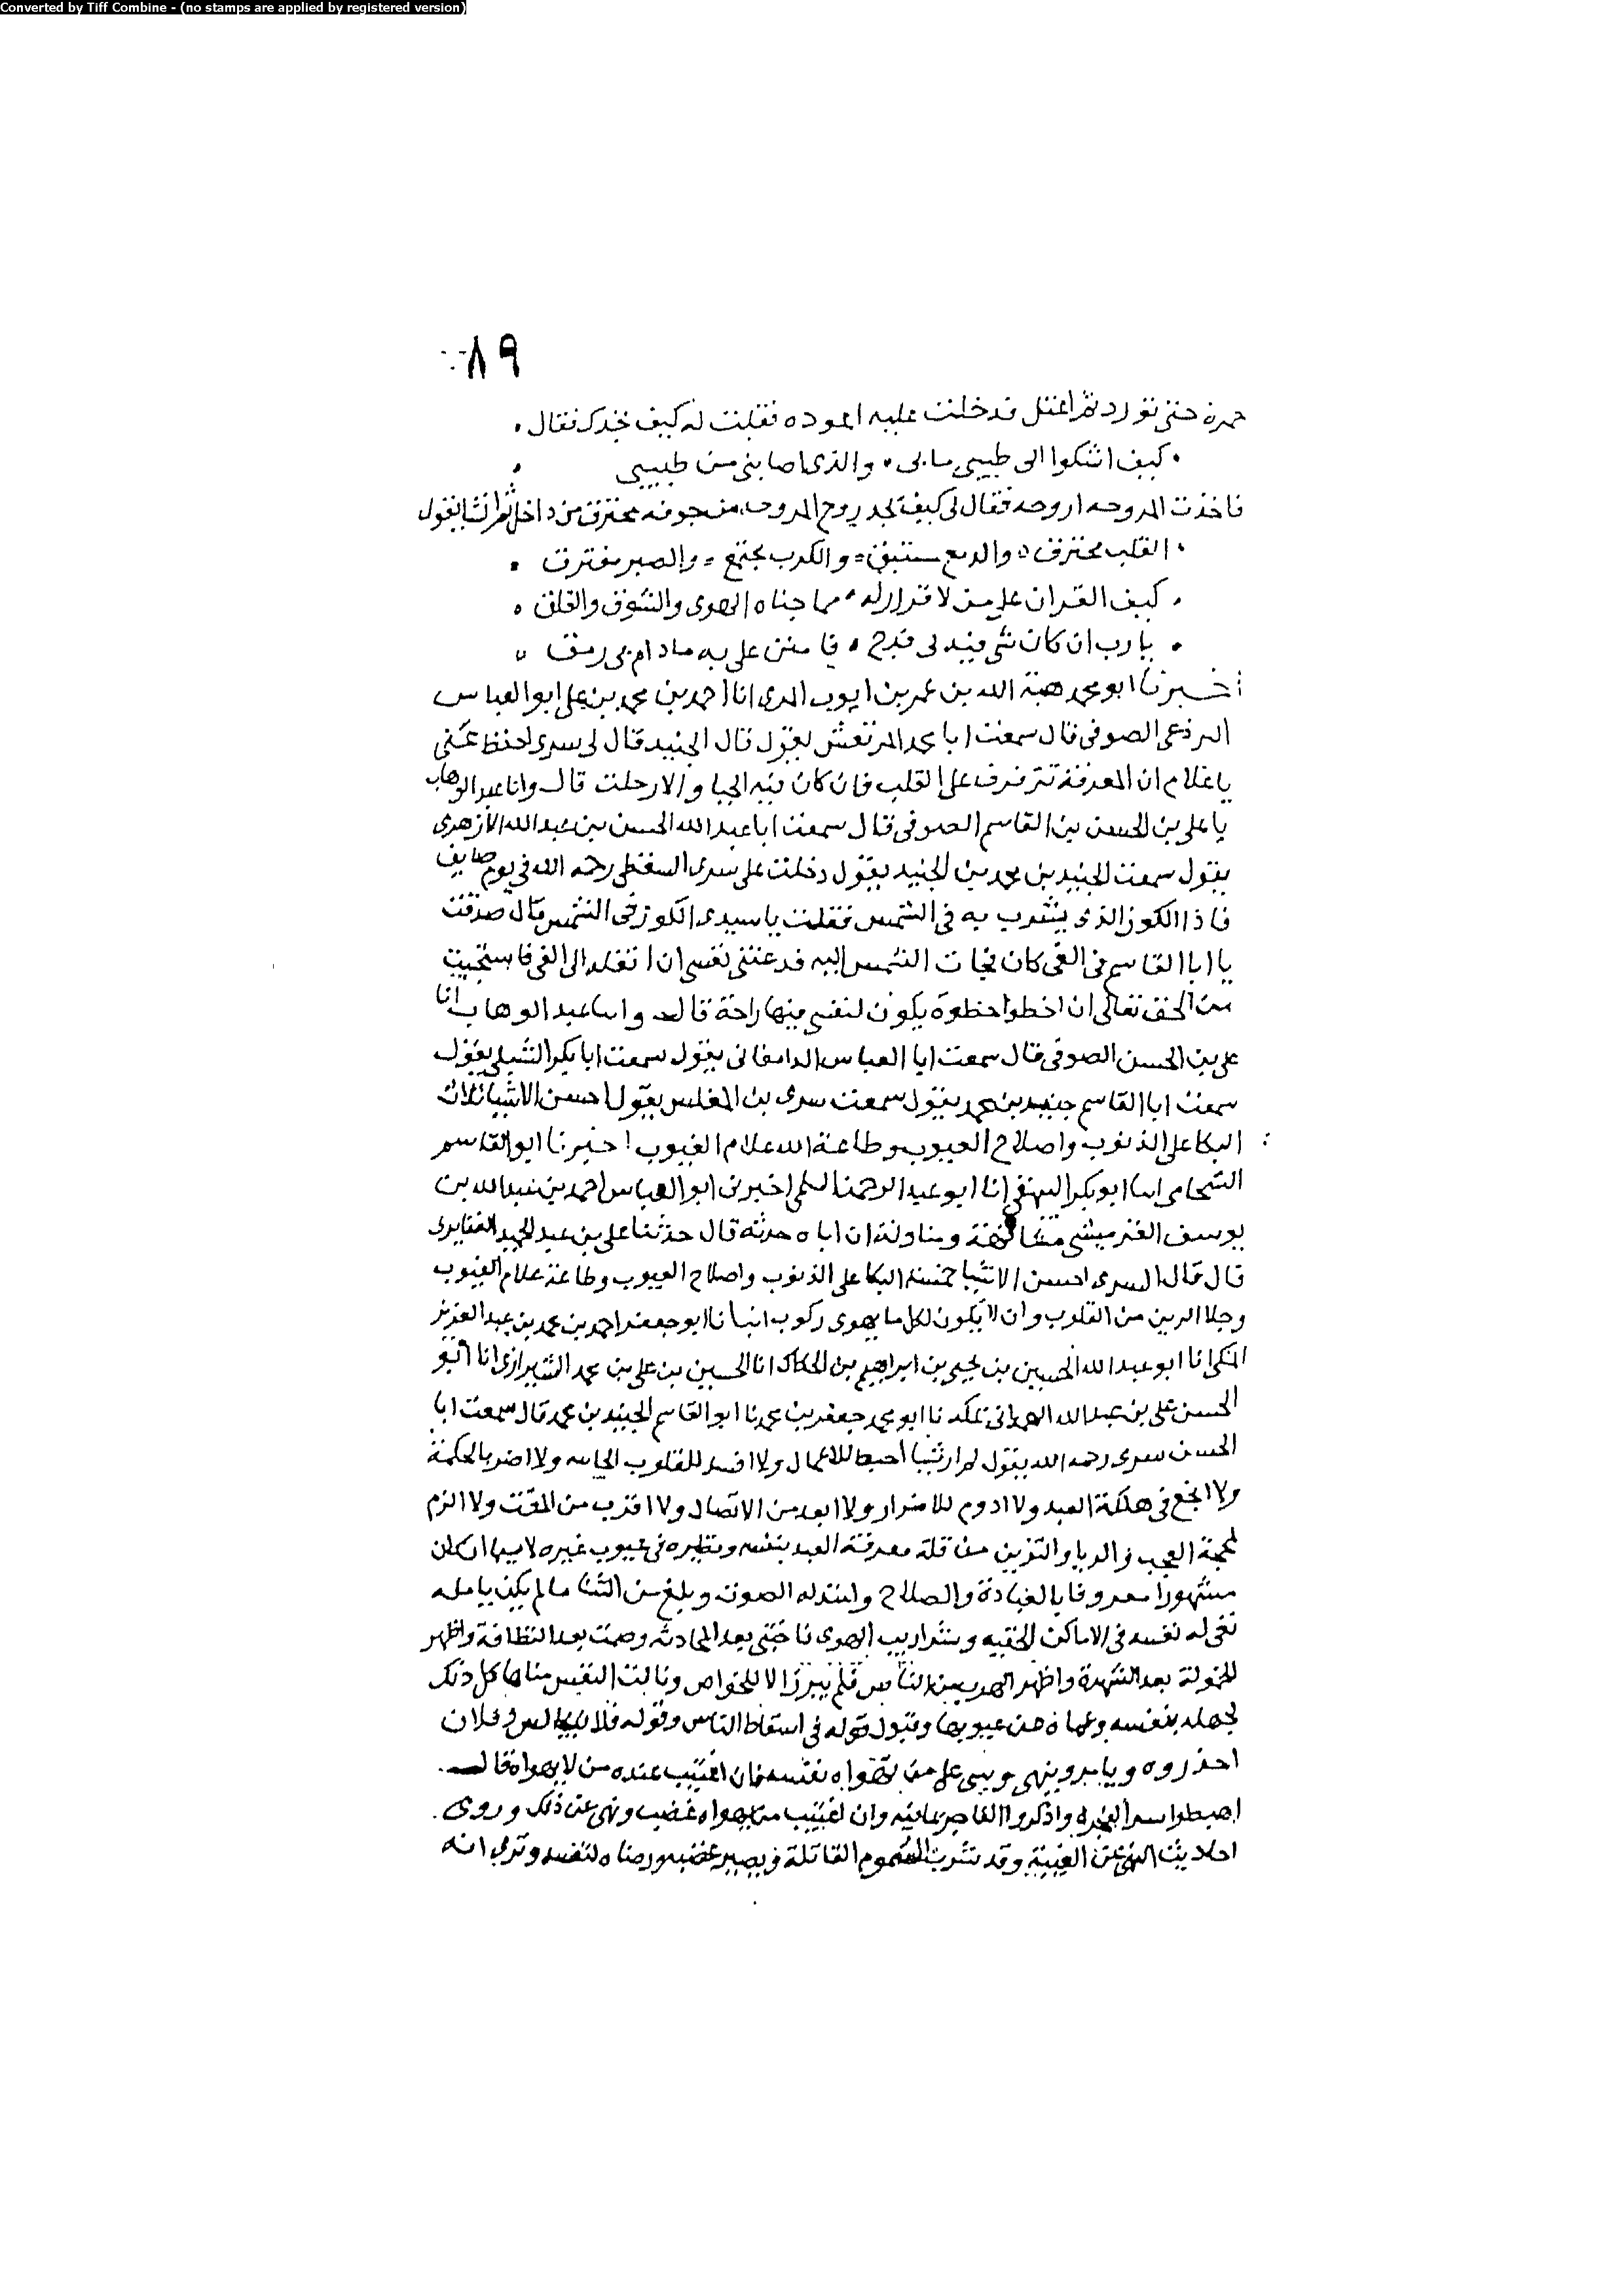 Converted by Tiff Combine - (no stamps are applied by registered version)
٨٩
حمرة حتى تورد ثم اعتل فدخلت عليه اعوده فقلت له كيف نجدك فقال
كيف اشكوا الى طبيبى ما بى والذى اصابنى من طبيبى
فاخذت المروحه اروحه فقال لى كيف يجد روح المروحه من جوفه محترق من داخل ثم انشا يقول
القلب محترق والدمع مستبق والكرب مجتمع والصبر مفترق
كيف القرار على من لا قرار له مما جناه الهوى والشوق والقلق
يا رب ان كان شى فيه لى فرج فامنن على به مادام بى رمق
أخبرنا ابو محمد هبة الله بن عمر بن ايوب انا احمد بن محمد بن على ابو العباس
البرذعى الصوفى قال سمعت ابا محمد المرتعش يقول قال الجنيد قال لى سرى احفظ عنى
يا غلام ان المعرفة ترفرف على القلب فان كان فيه الحيا والا رحلت قال وانا عبد الوهاب
يا على بن الحسن بن القاسم الصوفى قال سمعت ابا عبد الله الحسن بن عبد الله الازهرى
يقول سمعت الجنيد بن محمد بن الجنيد يقول دخلت على سرى السقطى رحمه الله فى يوم صايف
فاذا الكوز الذى يشرب به فى الشمس فقلت يا سيدى الكوز فى الشمس قال صدقت
يا ابا القاسم فى الفى كان فجات الشمس اليه فدعتنى نفسى ان انقله الى الفى فاستحييت
من الحق تعالى ان اخطوا خطوة يكون لنفسى فيها راحة قال وانا عبد الوهاب انا
على بن الحسن الصوفى قال سمعت ابا العباس الدامغانى يقول سمعت ابا بكر الشبلى يقول
سمعت ابا القاسم جنيد بن محمد يقول سمعت سرى بن المغلس يقول احسن الاشيا ثلاث
البكا على الذنوب واصلاح العيوب وطاعة الله علام الغيوب اخبرنا ابو القاسم
الشحامى انا ابو بكر البيهقى انا ابو عبد الرحمن السلمى اخبرنى ابو العباس احمد بن عبد الله بن
يوسف القرميسى مشافهة ومناولة ان اباه حدثه قال حدثنا على بن عبد الحميد الغضايرى
قال قال السرى احسن الاشيا خمسة البكا على الذنوب واصلاح العيوب وطاعة علام الغيوب
وجلا الرين من القلوب وان لا يكون لكل ما يهوى ركوب انبانا ابو جعفر احمد بن محمد بن عبد العزيز
المكى انا ابو عبد الله الحسين بن يحيى بن ابراهيم بن الحكاك انا الحسين بن على بن محمد الشيرازى انا ابو
الحسن على بن عبد الله الهمدانى بمكه نا ابو محمد جعفر بن محمد نا ابو القاسم الجنيد بن محمد قال سمعت ابا
الحسن سرى رحمه الله يقول لم ار شيا احبط للاعمال ولا افسد للقلوب ولا اضر بالحكمة
ولا انجع فى هلكة العبد ولا ادوم للاضرار ولا ابعد من الاتصال ولا اقرب من المقت ولا الزم
لمحجة العجب والريا والتزين من قلة معرفة العبد بنفسه ونظره فى عيوب غيره لا سيما ان كان
مشهورا معروفا بالعبادة والصلاح وامتد له الصوت وبلغ من الثنا ما لم يكن يامله
نفسه فى الاماكن الخفيه الهوى بعد المحادثه وصمت بعد النظافة واظهر
للخمولة بعد الشهرة واظهر الهرب من الناس فلم يبرز الا للخواص ونالت النفس مناها كل ذلك
لجهله بنفسه وعماه عن عيوبها وقبول قوله فى اسقاط الناس وقوله فلان وفلان
احذروه ويامر وينهى على من يهواه نفسه فان اغتيب عنده من لا يهواه قال
اهبطوا ستر الفجرة واذكروا الفاجر بما فيه وان اغتيب من يهواه غضب ونهى عن ذلك وروى
احاديث النهى عن الغيبة وقد تشرب السموم القاتلة ويصير غضبه ورضاه لنفسه وترى انه